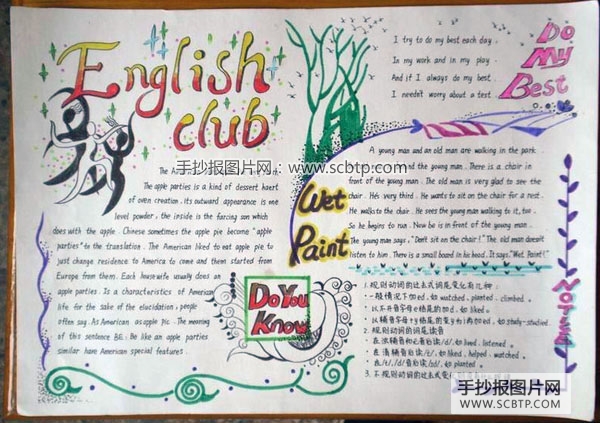 English
club
I try to do my best each day.
In my work and in my play
And if I always do my best.
I needn't worry about a test
Do
My
Best
手抄报图片网:www.scbtp.com
The apple parties is a kind of dessert
of oven creation. its outward appearance is one
level powder, the inside is the farcing son which
does with the apple. Chinese sometimes the apple pie become "apple
parties" to the translation. The American liked to eat apple pie to
just change residence to America to come and them started from
Europe from them). Each housewife usually does an
apple parties. Is a characteristics of American
life for the sake of the elucidation, people
often say. As American as apple pie. The meaning
of this sentence BE: Be like an apple parties
similar have American special features.
Do You
Know
Wet
Paint
A young man and an old man are walking in the park.
and the young man. There is a chair in
front of the young man. The old man is very glad to see the
chair. He's very third. He wants to sit on the chair for a rest.
He walks to the chair. He sees the young man walking to it, too.
So he begins to run. Now he is in front of the young man.
The young man says, "Don't sit on the chair!" The old man doesn't
listen to him. There is a small board in his head. It says "Wet Paint!"
1. 规则动词的过去式词尾变化有几种:
·一般情况下加ed, 如 watched, planted, climbed.
·以不发音字母e结尾的加d, 如 liked.
·以辅音字母+y结尾的变y为i再加ed, 如 study-studied
2. 规则动词的词尾读音
·在浊辅音和元音后读/d/, 如 lived, listened.
·在清辅音后读/t/, 如 liked, helped, watched.
·在/t/,/d/音后读/id/, 如 planted.
3. 不规则动词的过去式变
手抄报图片网
WWW.SCBTP.COM